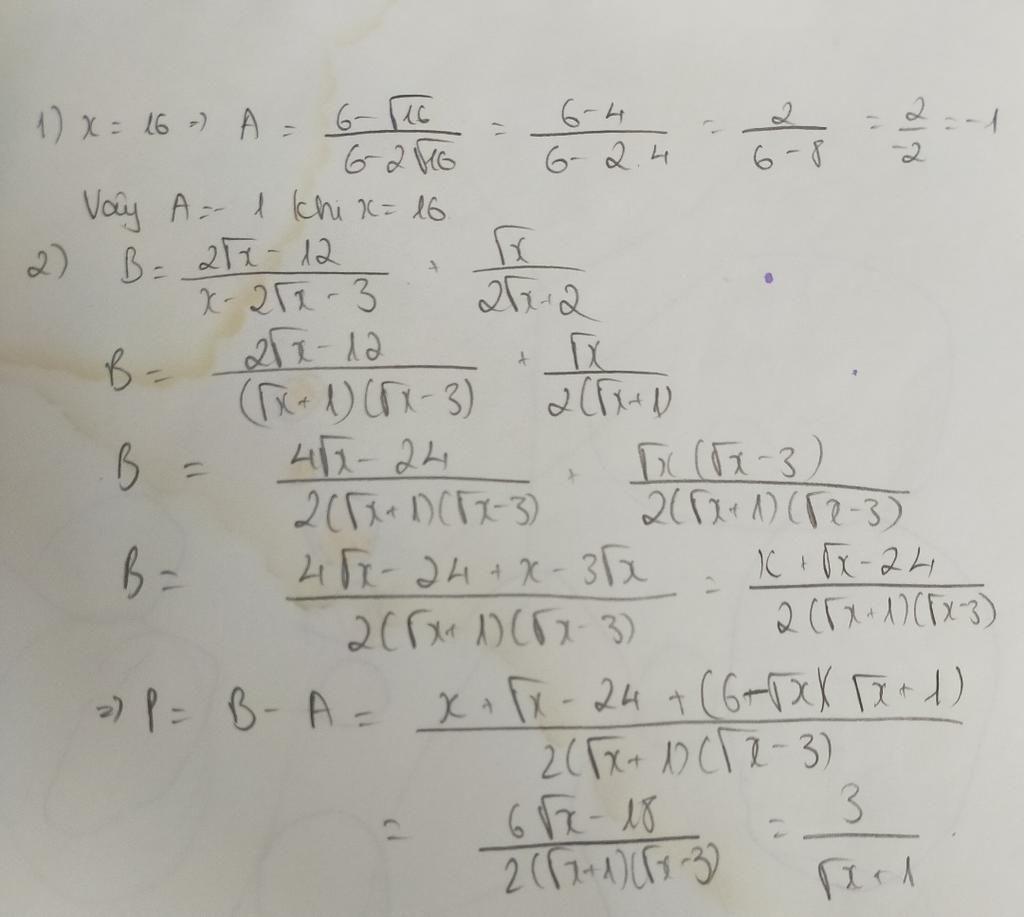 1) x = 16 => A = (6-√16)/(6-2√16) = (6-4)/(6-2.4) = 2/(6-8) = 2/-2 = -1
Vậy A = -1 khi x = 16
2) B = (2√x - 12)/(x - 2√x - 3) + √x/(2√x + 2)
B = (2√x - 12)/((√x + 1)(√x - 3)) + √x/(2(√x + 1))
B = (4√x - 24)/(2(√x + 1)(√x - 3)) + √x(√x - 3)/(2(√x + 1)(√x - 3))
B = (4√x - 24 + x - 3√x)/(2(√x + 1)(√x - 3)) = (x + √x - 24)/(2(√x + 1)(√x - 3))
=> P = B - A = (x + √x - 24 + (6 - √x)(√x + 1))/(2(√x + 1)(√x - 3))
= (6√x - 18)/(2(√x + 1)(√x - 3)) = 3/(√x + 1).